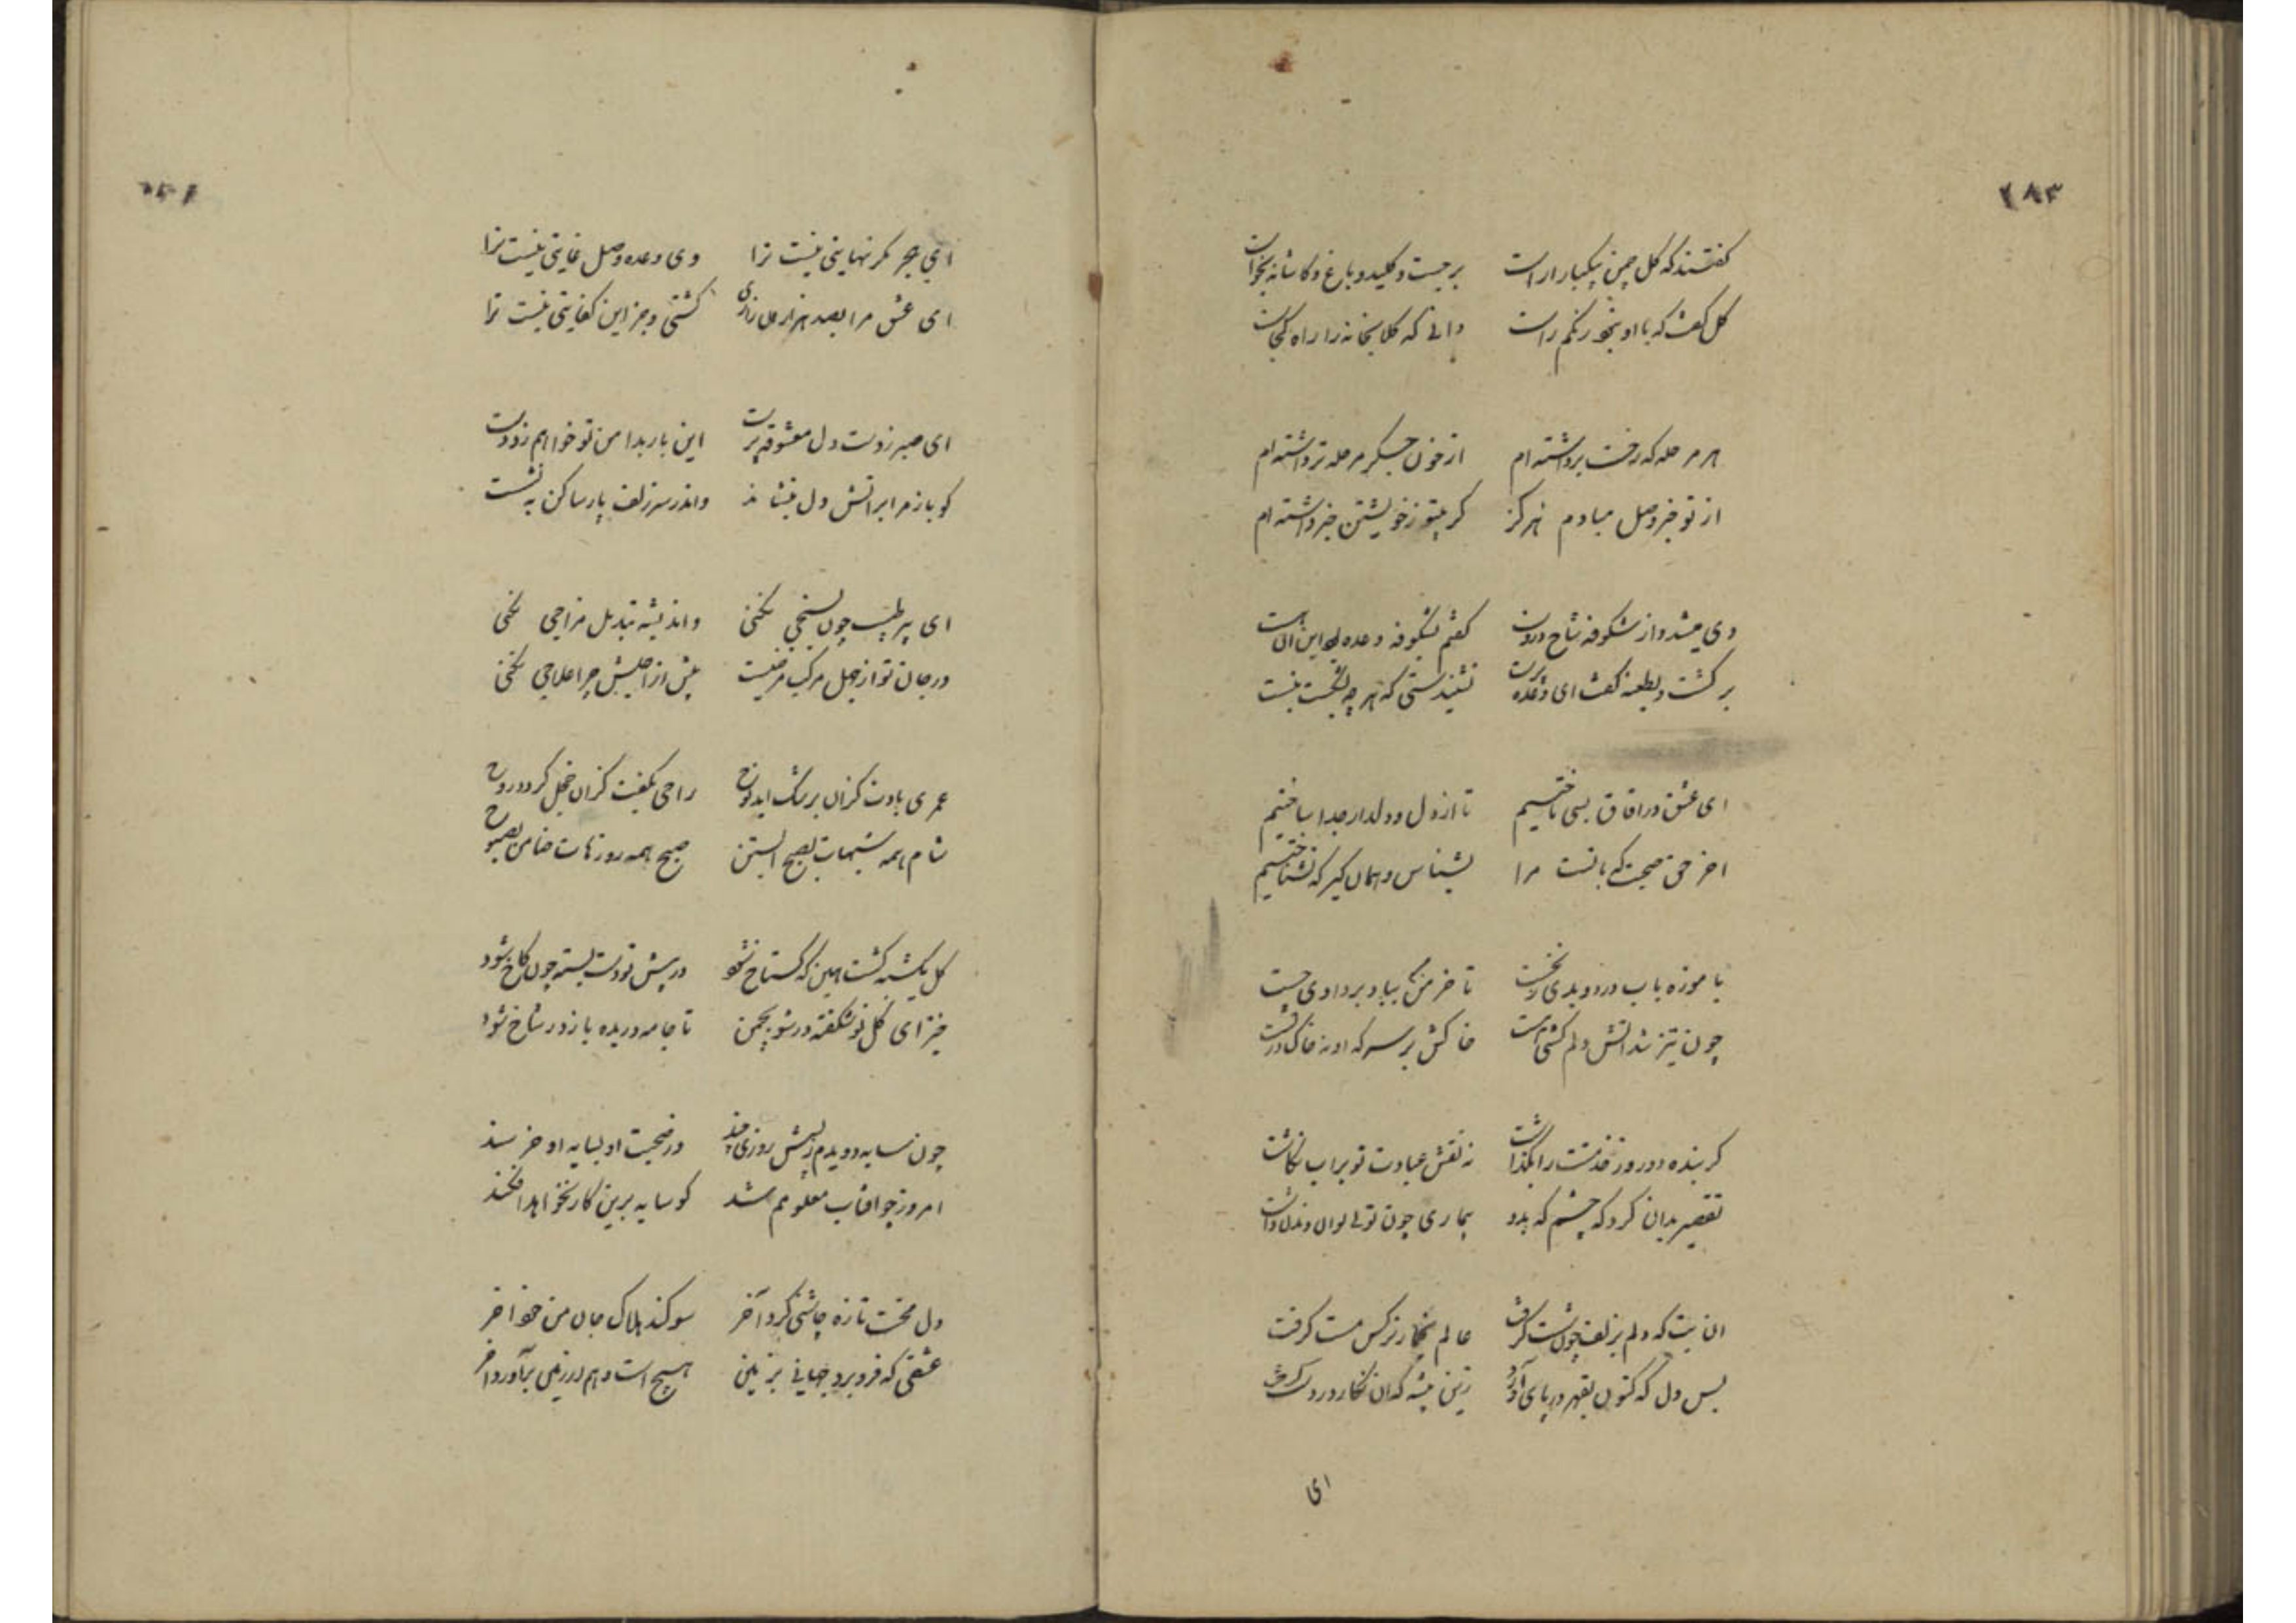 ۲۸۳
گفتند که گل چمن بیکبار اراست برجست و کلید و باغ و کاشانه بخواست
گل گفت که با او بنخورنگم راست دانی که گلابخانه را راه کجاست
هر مرحله که رخت برداشته‌ام از خون جگر مرحله تر داشته‌ام
از تو خبر وصل مبادم هرگز گر بیتو ز خویشتن خبر داشته‌ام
دی میشد و از شکوفه شاخ در دست گفتم بشکوفه وعده این ان هست
برگشت و بطعنه گفت ای وعده پرست نشنیدستی که هر چه بشکست نیست
ای عشق در افاق بسی تاختیم تا از دل و دلدار جدا ساختیم
اخر حق صحبتی که با تست مرا بشناس و همان گیر که نشناختیم
با موزه باب در دویدی ز نخست تا خرمن من بباد بردادی چست
چون تیز شد اتش دلم گشتی سست خاکش بر سر که او نه خاک در تست
گر بنده دو روز خدمتت را بگذاشت نه نقش عیادت تو بر اب نگاشت
تقصیر بدان کرد که چشم که بدو بیماری چون تویی توان دیدن داشت
ان بت که دلم بزلف چون شست گرفت عالم بخمار نرگس مست گرفت
بس دل که کنون بقهر در پای آورد زین پیشه که ان نگار در دست گرفت
ای
ای هجر مگر نهایتی نیست ترا وی وعده وصل غایتی نیست ترا
ای عشق مرا بصد هزاران زاری کشتی و جز این کفایتی نیست ترا
ای صبر ز دست دل معشوقه پرست این بار بدامن تو خواهم زد دست
کو باز مرا بر اتش دل بنشاند و اندر سر زلف یار ساکن به نشست
ای پیر طبیب چون بسنجی نکنی و اندیشه تبدیل مزاجی نکنی
در جان تو از جهل مرکب مرضیست پیش از اجلش چرا علاجی نکنی
عمری بادت کزان برشک اید نوح راحی بکفیت کزان خجل گردد روح
شام همه شبهات بصبح ابستن صبح همه روزهات ضامن بصبوح
گل یکشبه گشت هین که گستاخ نشود در پیش تو دست بسته چون کاخ شود
خیز ای گل نو شکفته در شو بچمن تا جامه دریده باز در شاخ شود
چون سایه دویدم ز پیش روزی چند در صحبت او بسایه او خرسند
امروز چو افتاب معلومم شد کو سایه برین کار نخواهد افکند
دل محنت تازه چاشنی کرد آخر سوگند هلاک جان من خورد اخر
عشقی که فرو برد جهانی بزمین هیچ است و هم از زمین برآورد اخر